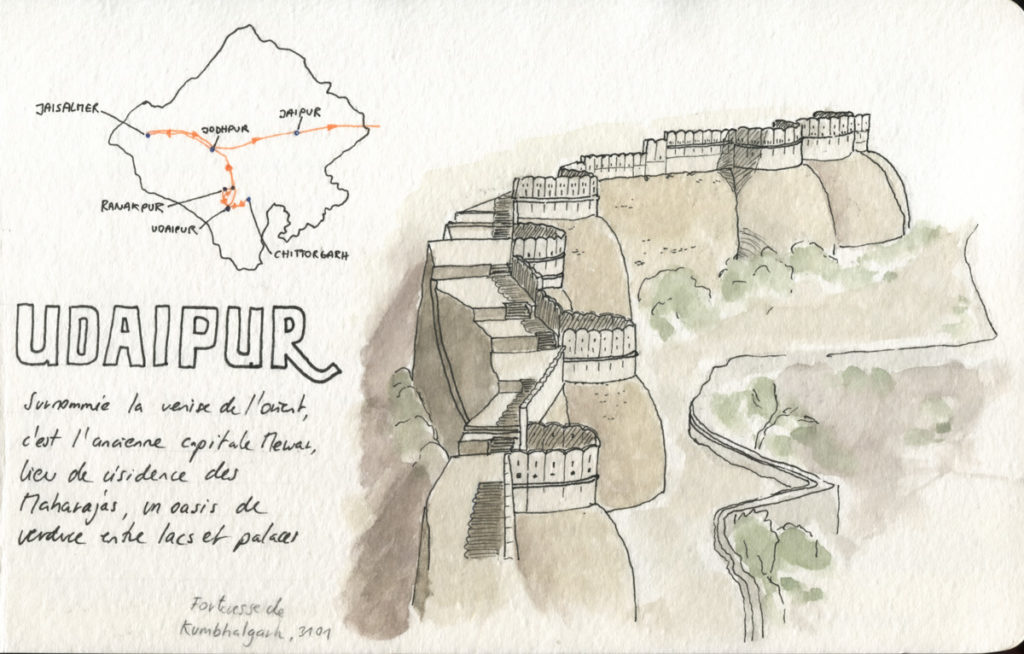 JAISALMER
JODHPUR
JAIPUR
RANAKPUR
UDAIPUR
CHITTORGARH
UDAIPUR
Surnommée la venise de l'orient,
c'est l'ancienne capitale Mewar,
lieu de résidence des
Maharajas, un oasis de
verdure entre lacs et palaces
Forteresse de
Kumbhalgarh, 31 01